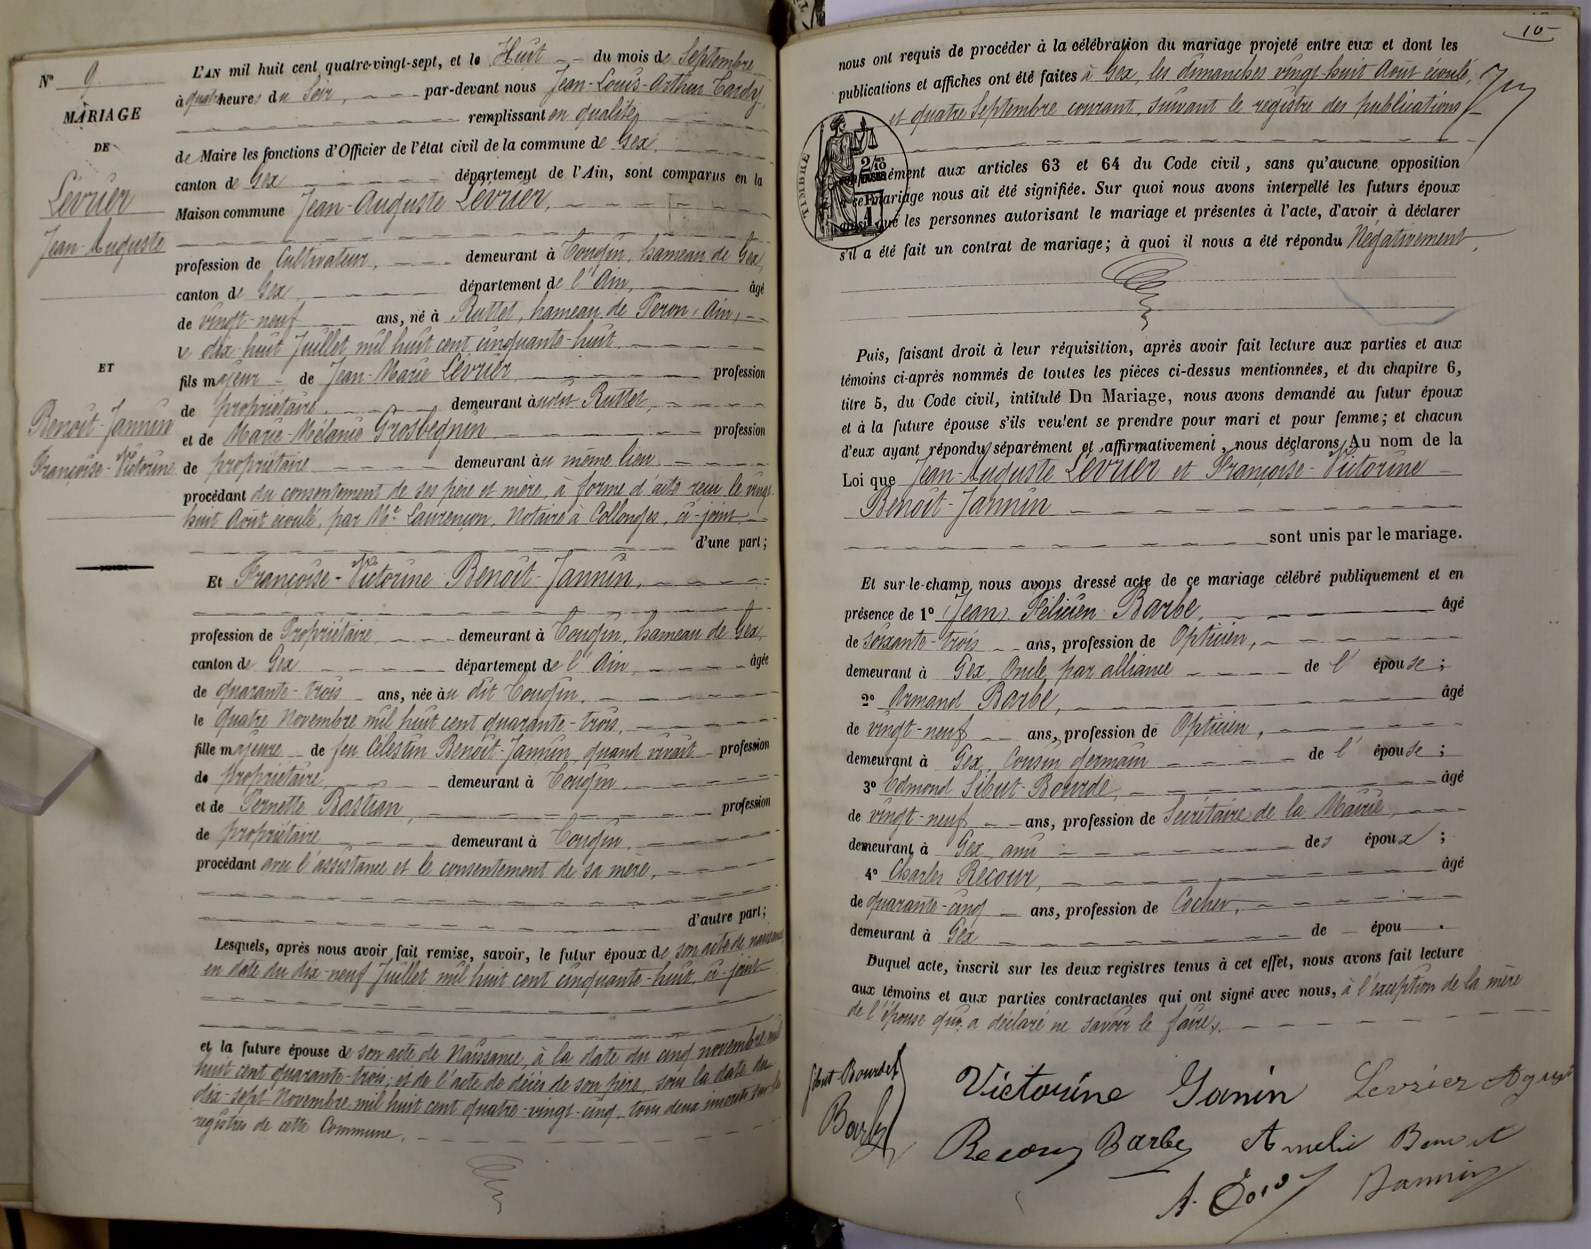 N° 9
MARIAGE
DE
Lévrier
Jean-Auguste
ET
Benoît-Jannin
Françoise-Victorine
L'AN mil huit cent quatre-vingt-sept, et le Huit du mois de Septembre
à quatre heures du Soir, par-devant nous Jean-Louis-Arthur Tardy,
remplissant en qualité
de Maire les fonctions d'Officier de l'état civil de la commune de Gex,
canton de Gex département de l'Ain, sont comparus en la
Maison commune Jean-Auguste Lévrier,
profession de Cultivateur, demeurant à Tougin, hameau de Gex,
canton de Gex département de l'Ain, âgé
de vingt-neuf ans, né à Ruttet, hameau de Peron, Ain,
le dix huit Juillet mil huit cent cinquante-huit,
fils majeur de Jean-Marie Lévrier profession
de propriétaire, demeurant audit Ruttet,
et de Marie-Mélanie Grosbegnin profession
de propriétaire demeurant au même lieu
procédant du consentement de ses père et mère, à forme d'acte reçu le vingt
huit Août écoulé, par Me Laurençon, Notaire à Collonges, ci-joint,
d'une part;
Et Françoise-Victorine Benoît-Jannin,
profession de Propriétaire demeurant à Tougin, hameau de Gex,
canton de Gex département de l'Ain, âgée
de quarante-trois ans, née au dit Tougin,
le quatre Novembre mil huit cent quarante-trois,
fille majeure de feu Célestin Benoît-Jannin, quand vivait profession
de propriétaire demeurant à Tougin
et de Pernette Bastian, profession
de propriétaire demeurant à Tougin,
procédant avec l'assistance et le consentement de sa mère,
d'autre part;
Lesquels, après nous avoir fait remise, savoir, le futur époux de son acte de naissance
en date du dix-neuf Juillet mil huit cent cinquante-huit, ci-joint
et la future épouse de son acte de Naissance, à la date du cinq novembre mil
huit cent quarante-trois; et de l'acte de décès de son père, sous la date du
dix-sept Novembre mil huit cent quatre-vingt-cinq, tous deux inscrits sur les
registres de cette Commune.
10
nous ont requis de procéder à la célébration du mariage projeté entre eux et dont les
publications et affiches ont été faites à Gex, les dimanches vingt-huit Août écoulé,
et quatre Septembre courant, suivant le registre des publications
TIMBRE
2/10
ément aux articles 63 et 64 du Code civil, sans qu'aucune opposition
à ce mariage nous ait été signifiée. Sur quoi nous avons interpellé les futurs époux
ainsi que les personnes autorisant le mariage et présentes à l'acte, d'avoir à déclarer
s'il a été fait un contrat de mariage; à quoi il nous a été répondu Négativement,
Puis, faisant droit à leur réquisition, après avoir fait lecture aux parties et aux
témoins ci-après nommés de toutes les pièces ci-dessus mentionnées, et du chapitre 6,
titre 5, du Code civil, intitulé Du Mariage, nous avons demandé au futur époux
et à la future épouse s'ils veulent se prendre pour mari et pour femme; et chacun
d'eux ayant répondu séparément et affirmativement, nous déclarons, Au nom de la
Loi que Jean-Auguste Lévrier et Françoise-Victorine
Benoît-Jannin
sont unis par le mariage.
Et sur-le-champ nous avons dressé acte de ce mariage célébré publiquement et en
présence de 1° (Jean) Félicien Barbe, âgé
de soixante-trois ans, profession de Opticien,
demeurant à Gex, Oncle par alliance de l'épouse;
2° Armand Barbe, âgé
de vingt-neuf ans, profession de Opticien,
demeurant à Gex, Cousin germain de l'épouse;
3° Edmond Sibut-Bourde, âgé
de vingt-neuf ans, profession de Secrétaire de la Mairie,
demeurant à Gex, ami des époux;
4° Charles Recour, âgé
de quarante-cinq ans, profession de Cocher,
demeurant à Gex de épou .
Duquel acte, inscrit sur les deux registres tenus à cet effet, nous avons fait lecture
aux témoins et aux parties contractantes qui ont signé avec nous, à l'exception de la mère
de l'épouse qui a déclaré ne savoir le faire.
Sibut-Bourde Victorine Janin Levrier Auguste
Barbe Recour Barbe Amelie Benoit
Jannin